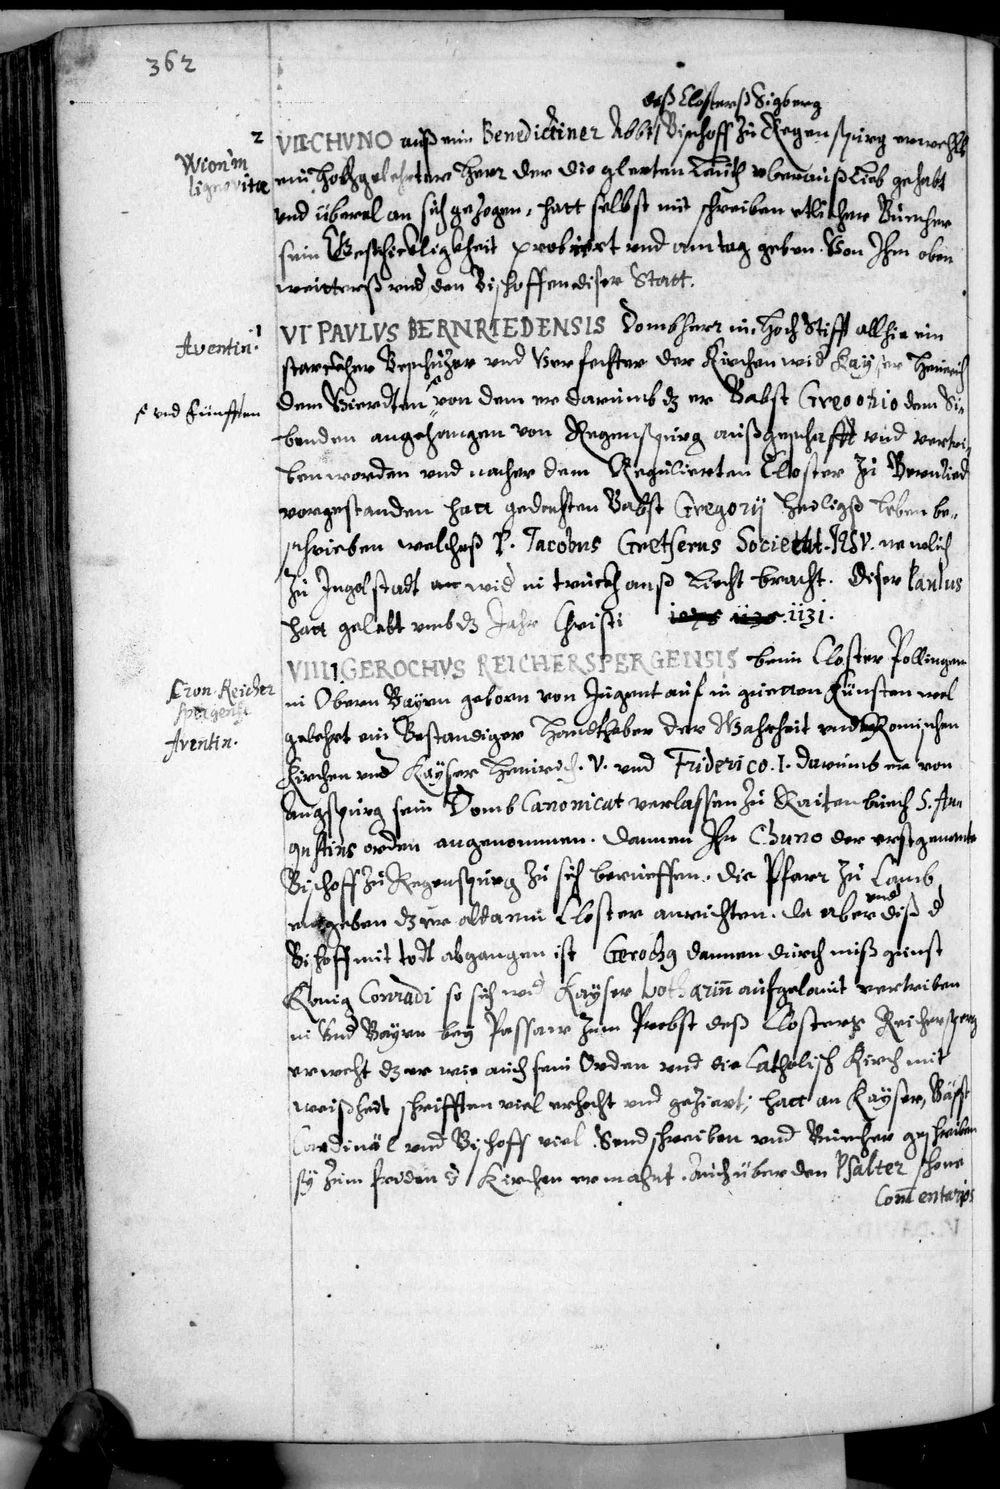 362
deß Closterß Sigberg
2
VII CHVNO auß eim Benedictiner Abbt Bischoff zu Regenspurg erwehlt
Wion in
ligno vitæ
ein hochgelehrter Herr der die glerten Leuth uberauß lieb gehabt
vnd überal an sich gezogen, hatt selbst mit schreiben etlicher Buecher
sein Geschickligkheit probiert vnd am tag geben. Von Ihm oben
weitterß vnd den Bischoffen diser Statt.
1
VI PAVLVS BERNRIEDENSIS Dombherr im Hoch Stifft allhie ein
Aventin.
starckher Beschüzer vnd Verfechter der Kirchen wid Kayser Heinrich
dem Vierdten von dem er darumb dz er Babst Gregorio dem Si-
vnd Fünfften
benden angehangen von Regenspurg außgeschafft vnd vertri-
ben worden vnd nacher dem Regulierten Closter zu Bernried
vorgestanden hatt gedachten Babst Gregorij heiligß leben be-
schrieben welcheß P. Jacobus Gretserus Societat. IESV. newlich
zu Ingolstadt wid in truckh anß liecht bracht. Diser Paulus
hatt gelebt vmb dz Jahr Christi 1131.
VIIII GEROCHVS REICHERSPERGENSIS beim Closter Pollingen
Cron. Reicher
spergens.
Aventin.
in Obern Bayrn geborn von Jugent auf in guetten Künsten wol
gelehrt ein Bestandiger Handthaber der Warheit vnd Römischen
Kirchen vnd Kayser Heinrich. V. vnd Friderico. I. darumb er von
Augspurg sein Domb Canonicat verlassen zu Raitenbuech S. Au
gustins orden angenommen. dannen Ihn Chuno der erstgenante
Bischoff zu Regenspurg zu sich berueffen. die Pfarr zu Camb
eingeben dz er alda ein Closter anrichten. da aber vnd diß d
Bischoff mit todt abgangen ist Geroch9 dannen durch mißgunst
König Conradi so sich wid Kayser Lotharin aufgelaint vertriben
in Vnd Bayrn bey Passaw zum Probst deß Closterß Reichersperg
erwehlt dz er wie auch sein Orden vnd die Catholisch Kirch mit
weißheit schrifften viel erhecht vnd geziert; hatt an Kayser, Bäpst
Cardinäl vnd Bischoff viel Sendschreiben vnd Buecher geschriben
sÿ zum friden d Kirchen ermahnt. Auch über den Psalter schene
Com̃entarios